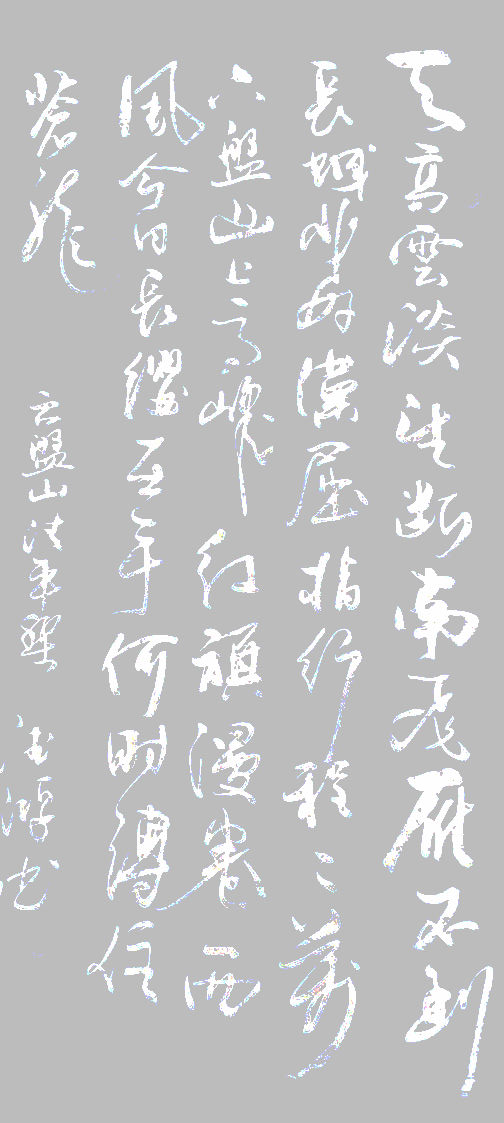 天高雲淡望断南飛雁不到
長城非好漢屈指行程二萬
六盤山上高峰紅旗漫卷西
風今日長纓在手何時縛住
蒼龍
六盤山清平樂
書